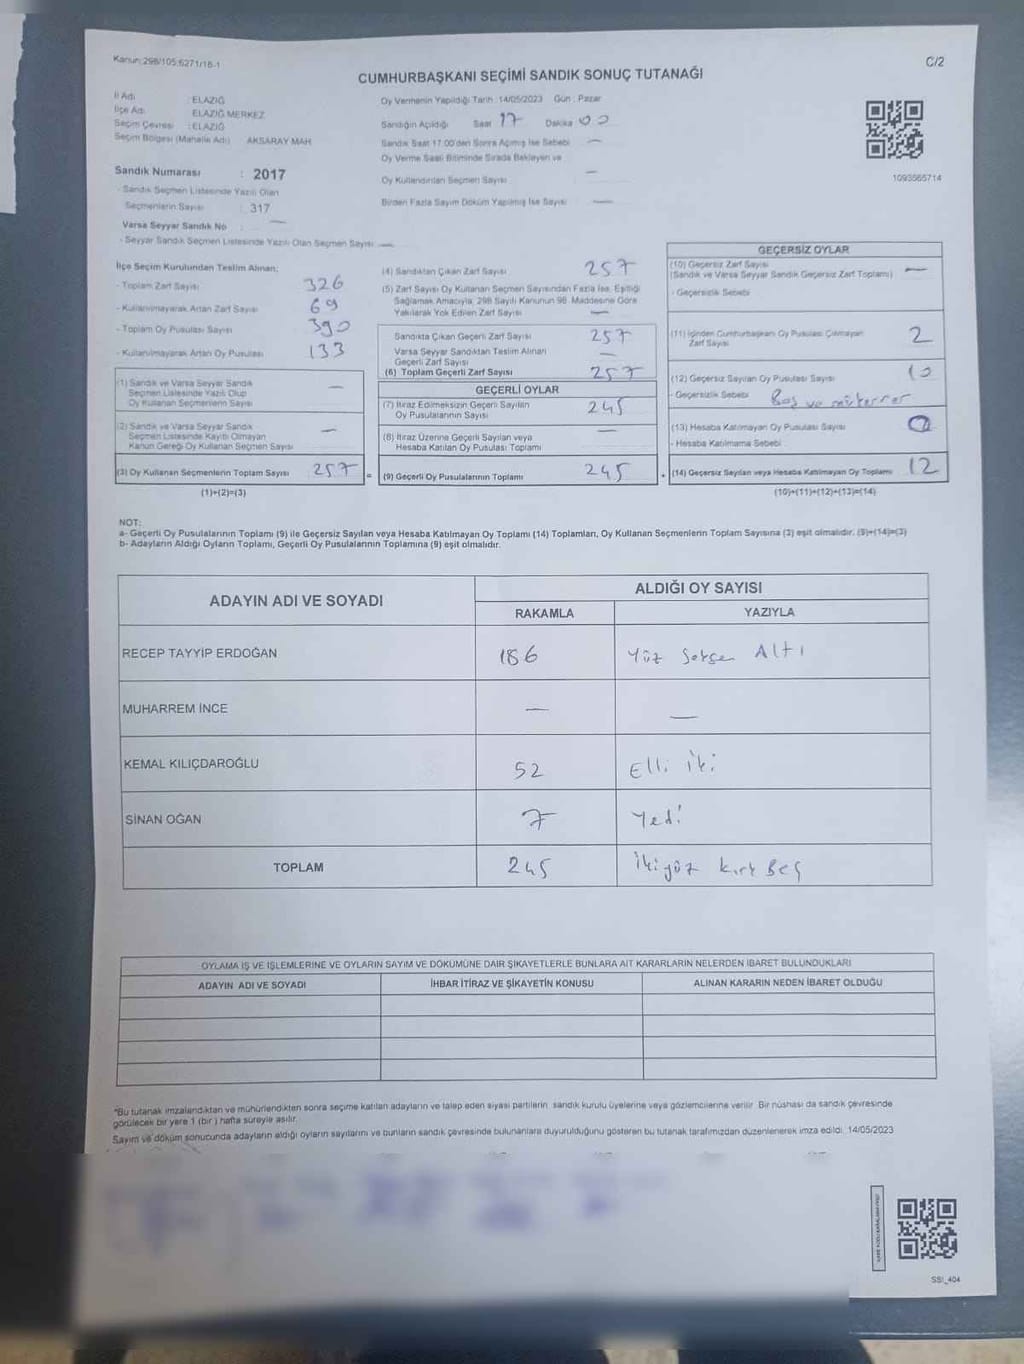 Kanun: 298/105;6271/18-1
C/2
CUMHURBAŞKANI SEÇİMİ SANDIK SONUÇ TUTANAĞI
İl Adı : ELAZIĞ
İlçe Adı : ELAZIĞ MERKEZ
Seçim Çevresi : ELAZIĞ
Seçim Bölgesi (Mahalle Adı) AKSARAY MAH
Sandık Numarası : 2017
- Sandık Seçmen Listesinde Yazılı Olan
Seçmenlerin Sayısı : 317
Varsa Seyyar Sandık No : —
- Seyyar Sandık Seçmen Listesinde Yazılı Olan Seçmen Sayısı : —
Oy Vermenin Yapıldığı Tarih : 14/05/2023 Gün : Pazar
Sandığın Açıldığı Saat 17 Dakika 00
Sandık Saat 17:00'den Sonra Açılmış İse Sebebi —
Oy Verme Saati Bitiminde Sırada Bekleyen ve
Oy Kullandırılan Seçmen Sayısı —
Birden Fazla Sayım Döküm Yapılmış İse Sayısı —
1093565714
İlçe Seçim Kurulundan Teslim Alınan;
- Toplam Zarf Sayısı 326
- Kullanılmayarak Artan Zarf Sayısı 69
- Toplam Oy Pusulası Sayısı 390
- Kullanılmayarak Artan Oy Pusulası 133
(1) Sandık ve Varsa Seyyar Sandık
Seçmen Listesinde Yazılı Olup
Oy Kullanan Seçmenlerin Sayısı —
(2) Sandık ve Varsa Seyyar Sandık
Seçmen Listesinde Kayıtlı Olmayan
Kanun Gereği Oy Kullanan Seçmen Sayısı —
(3) Oy Kullanan Seçmenlerin Toplam Sayısı 257 =
(1)+(2)=(3)
(4) Sandıktan Çıkan Zarf Sayısı 257
(5) Zarf Sayısı Oy Kullanan Seçmen Sayısından Fazla İse, Eşitliği
Sağlamak Amacıyla, 298 Sayılı Kanunun 98. Maddesine Göre
Yakılarak Yok Edilen Zarf Sayısı —
Sandıkta Çıkan Geçerli Zarf Sayısı 257
Varsa Seyyar Sandıktan Teslim Alınan
Geçerli Zarf Sayısı —
(6) Toplam Geçerli Zarf Sayısı 257
GEÇERLİ OYLAR
(7) İtiraz Edilmeksizin Geçerli Sayılan
Oy Pusulalarının Sayısı 245
(8) İtiraz Üzerine Geçerli Sayılan veya
Hesaba Katılan Oy Pusulası Toplamı —
(9) Geçerli Oy Pusulalarının Toplamı 245 +
GEÇERSİZ OYLAR
(10) Geçersiz Zarf Sayısı
(Sandık ve Varsa Seyyar Sandık Geçersiz Zarf Toplamı) —
- Geçersizlik Sebebi
(11) İçinden Cumhurbaşkanı Oy Pusulası Çıkmayan
Zarf Sayısı 2
(12) Geçersiz Sayılan Oy Pusulası Sayısı 10
- Geçersizlik Sebebi Boş ve mükerrer
(13) Hesaba Katılmayan Oy Pusulası Sayısı 0
- Hesaba Katılmama Sebebi
(14) Geçersiz Sayılan veya Hesaba Katılmayan Oy Toplamı 12
(10)+(11)+(12)+(13)=(14)
NOT:
a- Geçerli Oy Pusulalarının Toplamı (9) ile Geçersiz Sayılan veya Hesaba Katılmayan Oy Toplamı (14) Toplamları, Oy Kullanan Seçmenlerin Toplam Sayısına (3) eşit olmalıdır. (9)+(14)=(3)
b- Adayların Aldığı Oyların Toplamı, Geçerli Oy Pusulalarının Toplamına (9) eşit olmalıdır.
ADAYIN ADI VE SOYADI
ALDIĞI OY SAYISI
RAKAMLA YAZIYLA
RECEP TAYYİP ERDOĞAN 186 Yüz Seksen Altı
MUHARREM İNCE — —
KEMAL KILIÇDAROĞLU 52 Elli iki
SİNAN OĞAN 7 Yedi
TOPLAM 245 İkiyüz kırk Beş
OYLAMA İŞ VE İŞLEMLERİNE VE OYLARIN SAYIM VE DÖKÜMÜNE DAİR ŞİKAYETLERLE BUNLARA AİT KARARLARIN NELERDEN İBARET BULUNDUKLARI
ADAYIN ADI VE SOYADI İHBAR İTİRAZ VE ŞİKAYETİN KONUSU ALINAN KARARIN NEDEN İBARET OLDUĞU
*Bu tutanak imzalandıktan ve mühürlendikten sonra seçime katılan adayların ve talep eden siyasi partilerin sandık kurulu üyelerine veya gözlemcilerine verilir. Bir nüshası da sandık çevresinde
görülecek bir yere 1 (bir) hafta süreyle asılır.
Sayım ve döküm sonucunda adayların aldığı oyların sayılarını ve bunların sandık çevresinde bulunanlara duyurulduğunu gösteren bu tutanak tarafımızdan düzenlenerek imza edildi. 14/05/2023
SSI_404